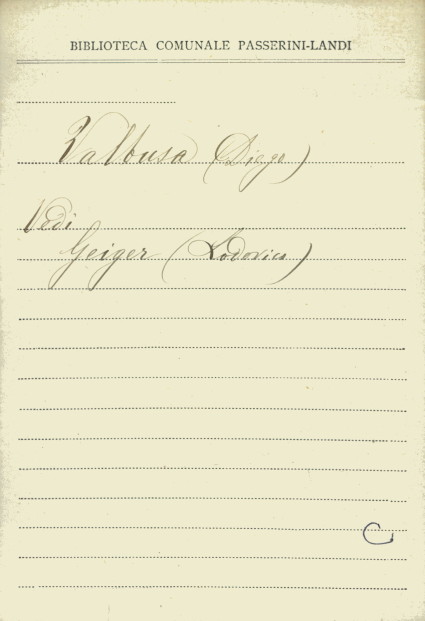 BIBLIOTECA COMUNALE PASSERINI-LANDI
Valbusa (Diego)
Vedi
Geiger (Lodovico)
C